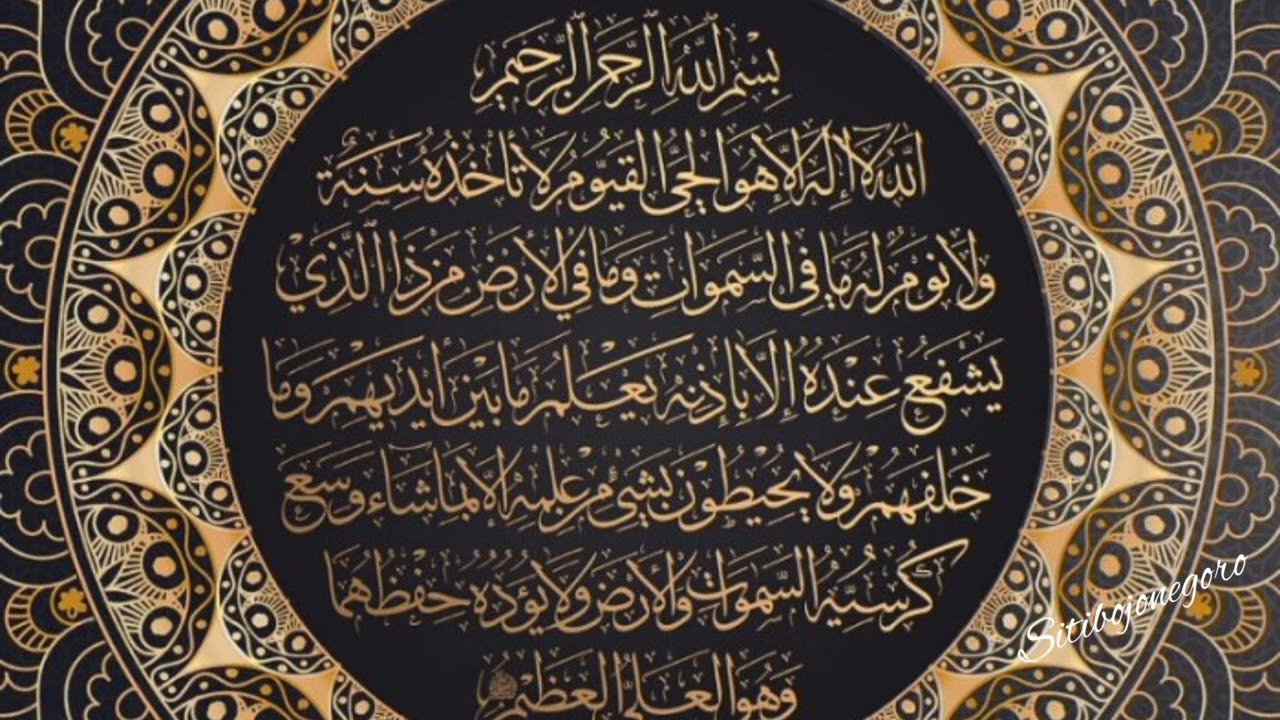 بِسْمِ اللَّهِ الرَّحْمَنِ الرَّحِيمِ
اللَّهُ لَا إِلَهَ إِلَّا هُوَ الْحَيُّ الْقَيُّومُ لَا تَأْخُذُهُ سِنَةٌ
وَلَا نَوْمٌ لَهُ مَا فِي السَّمَوَاتِ وَمَا فِي الْأَرْضِ مَنْ ذَا الَّذِيْ
يَشْفَعُ عِنْدَهُ إِلَّا بِإِذْنِهِ يَعْلَمُ مَا بَيْنَ أَيْدِيهِمْ وَمَا
خَلْفَهُمْ وَلَا يُحِيْطُونَ بِشَيْءٍ مِنْ عِلْمِهِ إِلَّا بِمَا شَاءَ وَسِعَ
كُرْسِيُّهُ السَّمَوَاتِ وَالْأَرْضَ وَلَا يَؤُدُهُ حِفْظُهُمَا
وَهُوَ الْعَلِيُّ الْعَظِيمُ
Sitibojonegoro